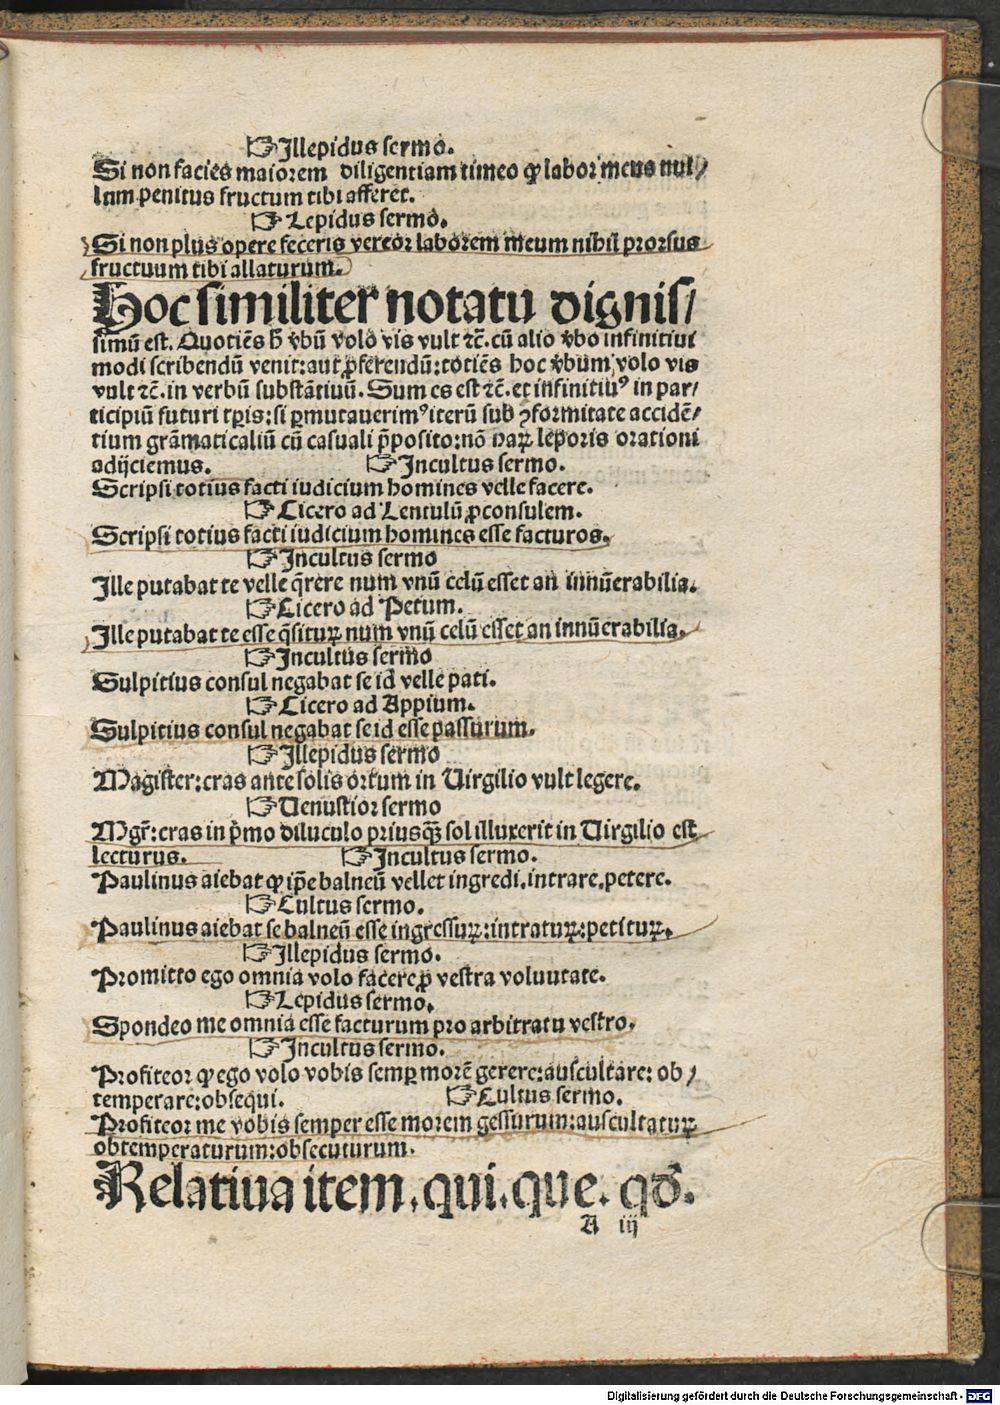 ☞Illepidus sermo.
Si non facies maiorem diligentiam timeo ꝙ labor meus nul/
lum penitus fructum tibi afferet.
☞Lepidus sermo.
Si non plus opere feceris vereor laborem meum nihil prorsus
fructuum tibi allaturum.
Hoc similiter notatu dignis/
simū est. Quotiēs h̄ v̄bū volo vis vult ⁊c̄. cū alio v̄bo infinitiui
modi scribendū venit: aut ꝓferendū: totiēs hoc v̄bum, volo vis
vult ⁊c̄. in verbū substātiuū. Sum es est ⁊c̄. et infinitiuꝰ in par/
ticipiū futuri tp̄is: si ꝑmutauerimꝰ iterū sub ꝯformitate accidē/
tium grāmaticaliū cū casuali p̄posito: nō paꝝ leporis orationi
adijciemus. ☞Incultus sermo.
Scripsi totius facti iudicium homines velle facere.
☞Cicero ad Lentulū ꝓconsulem.
Scripsi totius facti iudicium homines esse facturos.
☞Incultus sermo
Ille putabat te velle q̄rere num vnū celū esset an innūerabilia.
☞Cicero ad Petum.
Ille putabat te esse q̄situꝝ num vnū celū esset an innūerabilia.
☞Incultus sermo
Sulpitius consul negabat se id velle pati.
☞Cicero ad Appium.
Sulpitius consul negabat se id esse passurum.
☞Illepidus sermo
Magister: cras ante solis ortum in Virgilio vult legere.
☞Venustior sermo
Mgr̄: cras in p̄mo diluculo priusqȝ sol illuxerit in Virgilio est
lecturus. ☞Incultus sermo.
Paulinus aiebat ꝙ ip̄e balneū vellet ingredi. intrare. petere.
☞Cultus sermo.
Paulinus aiebat se balneū esse ingressuꝝ: intratuꝝ: petituꝝ.
☞Illepidus sermo.
Promitto ego omnia volo facere ꝓ vestra voluutate.
☞Lepidus sermo.
Spondeo me omnia esse facturum pro arbitratu vestro.
☞Incultus sermo.
Profiteor ꝙ ego volo vobis semꝑ morē gerere: auscultare: ob/
temperare: obsequi. ☞Cultus sermo.
Profiteor me vobis semper esse morem gessurum: auscultatuꝝ
obtemperaturum: obsecuturum.
Relatiua item. qui. que. qd̄.
A iij
Digitalisierung gefördert durch die Deutsche Forschungsgemeinschaft - DFG